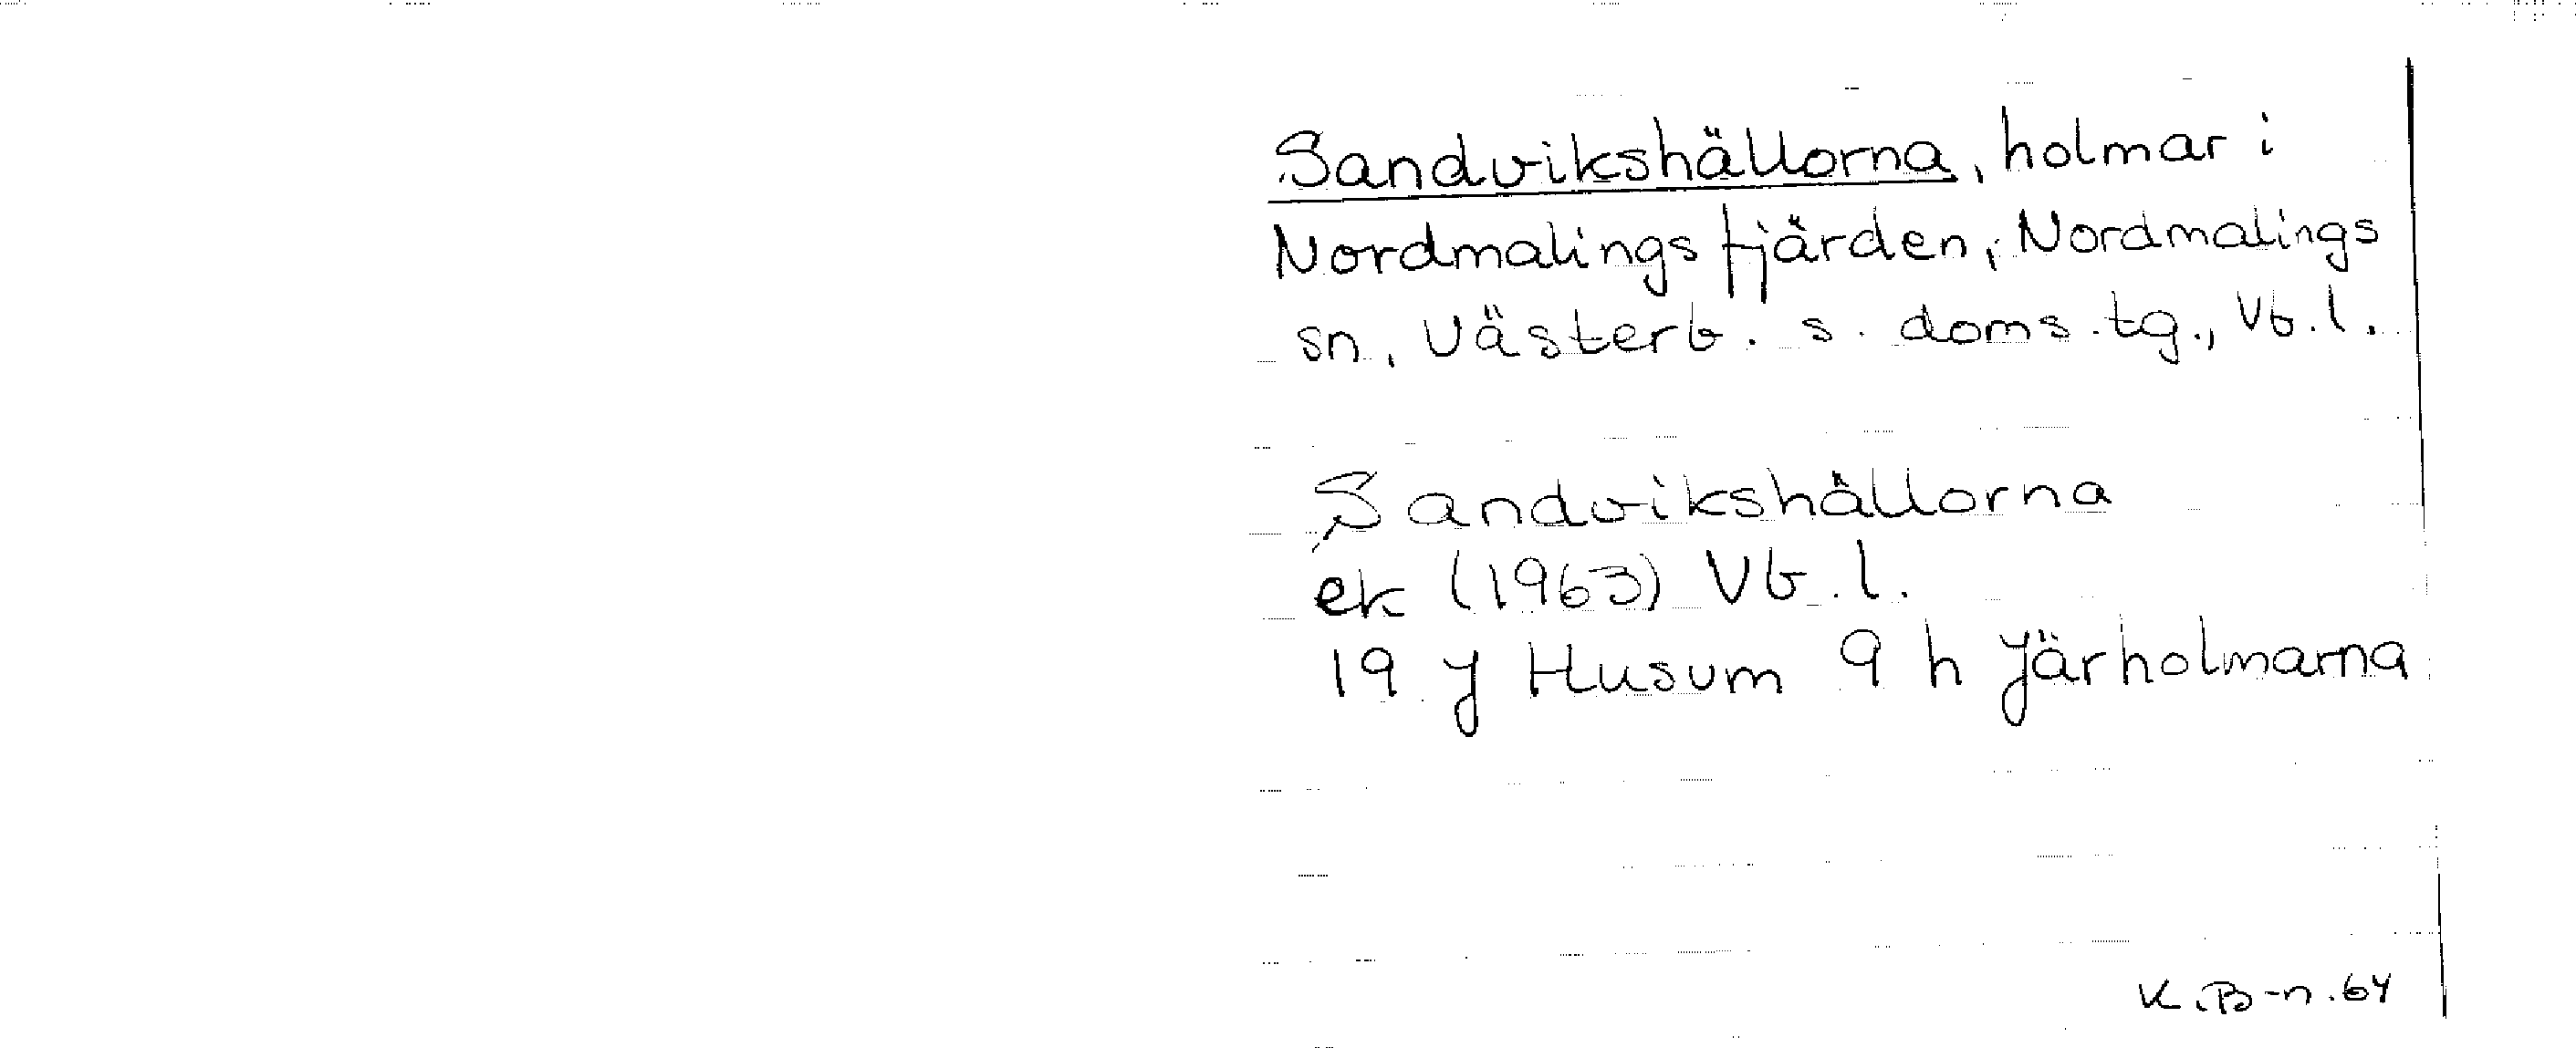 Sandvikshällorna, holmar i
Nordmalingsfjärden, Nordmalings
sn, Västerb. s. doms.tg., Vb.l.
Sandvikshällorna
ek (1963) Vb.l.
19 J Husum 9 h Järholmarna
K.B-n.64